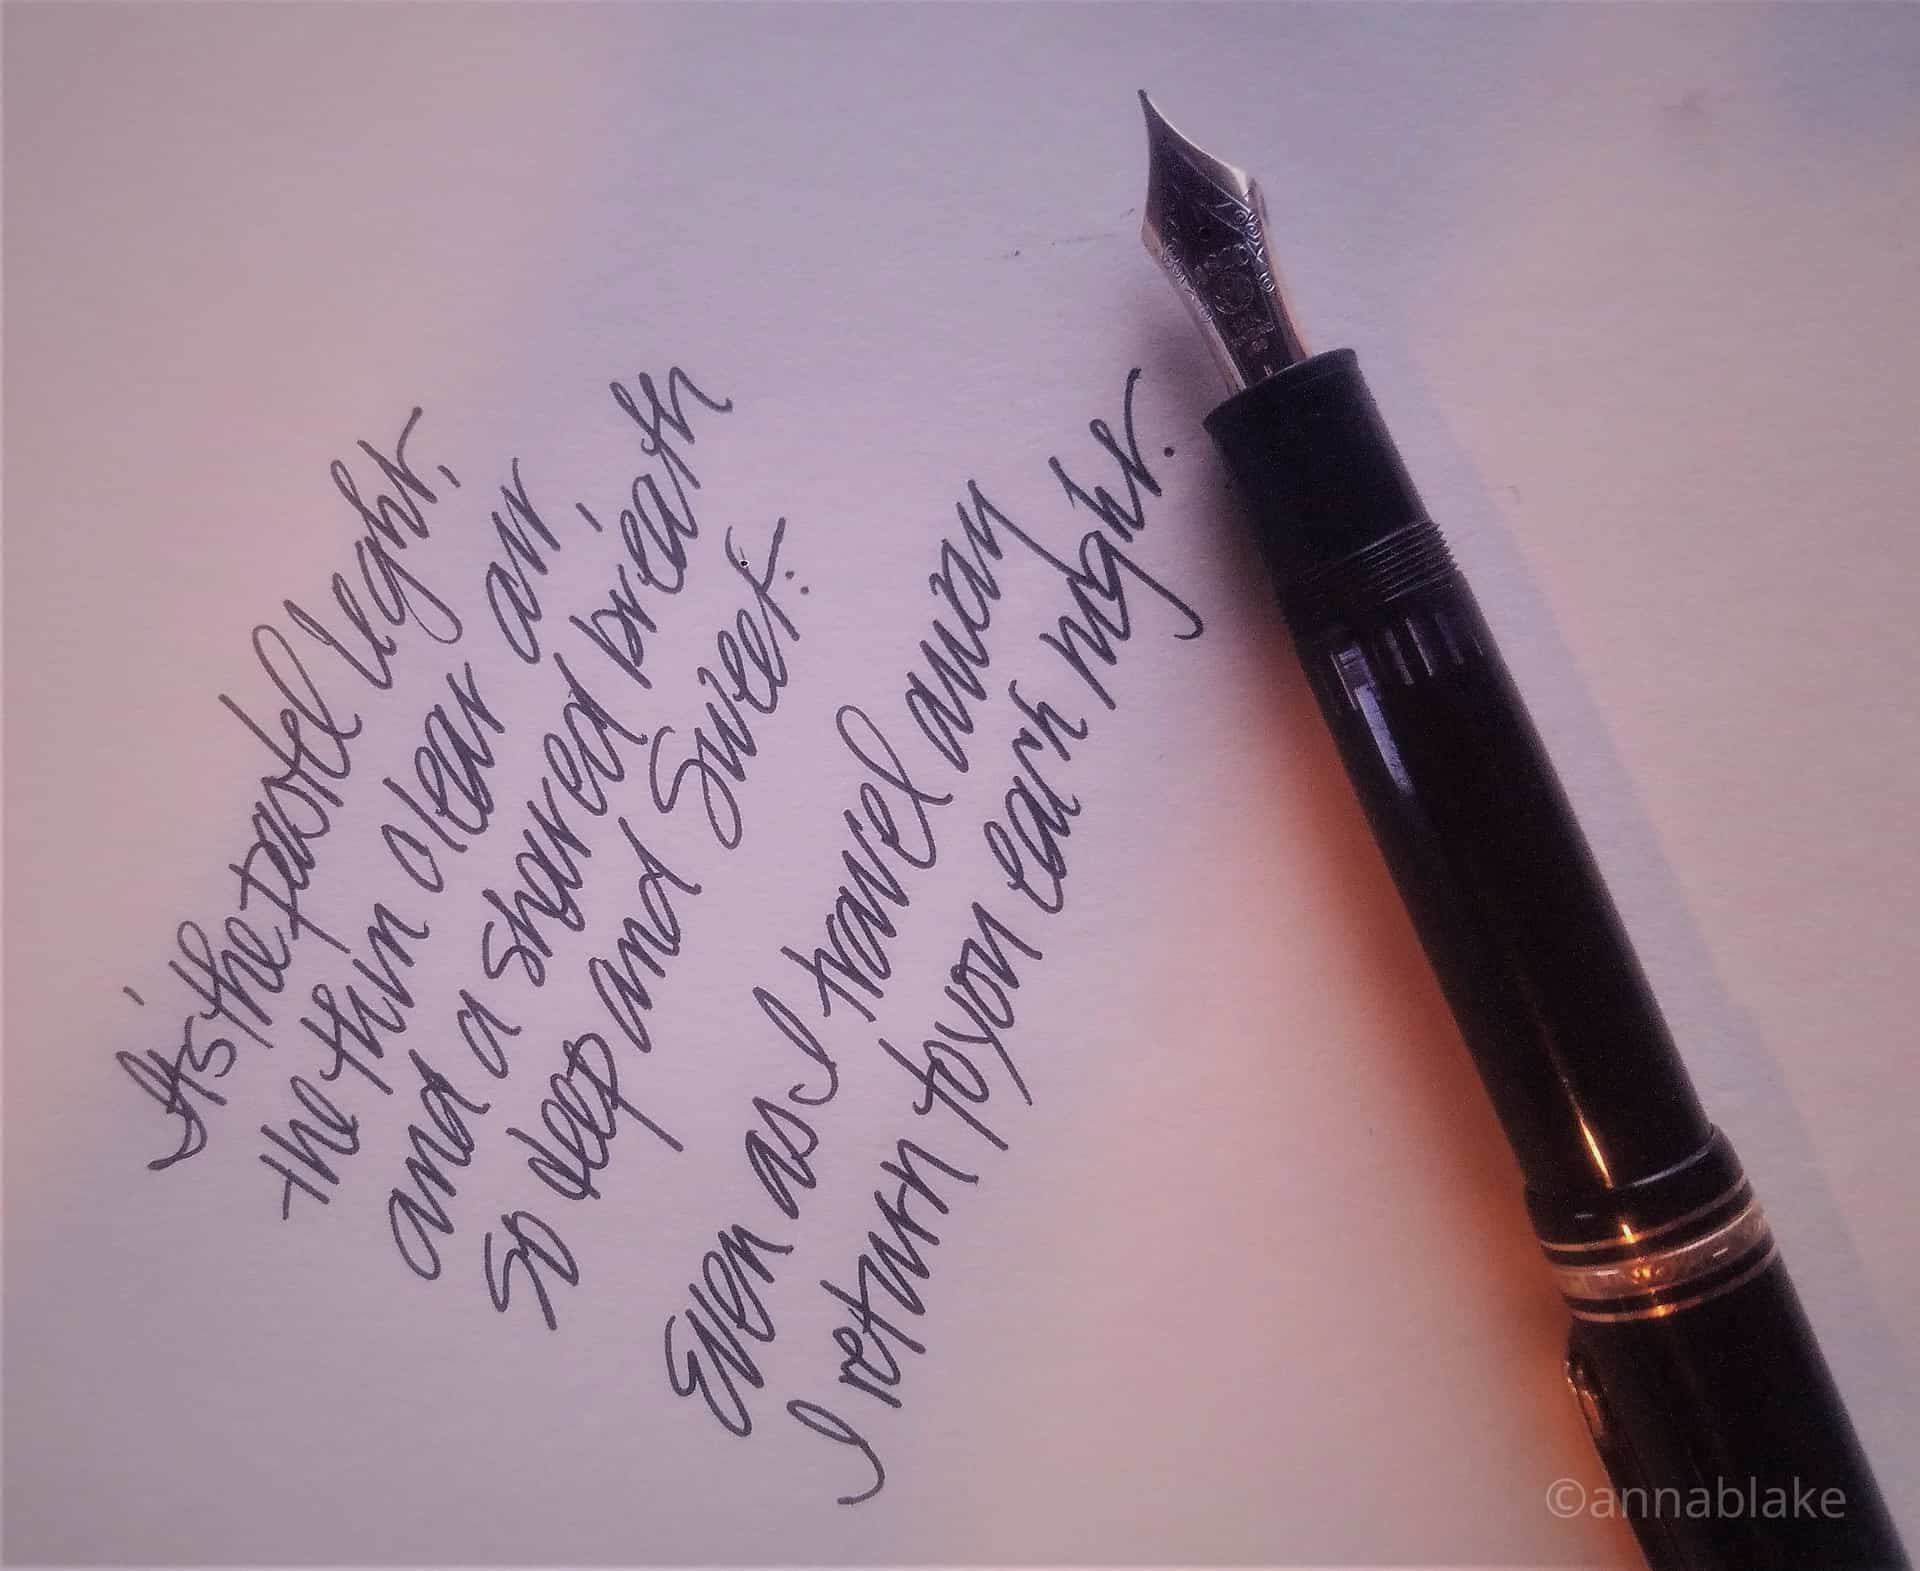 It's the pastel light,
the thin clear air,
and a shared breath
so deep and sweet.
Even as I travel away
I return to you each night.
©annablake